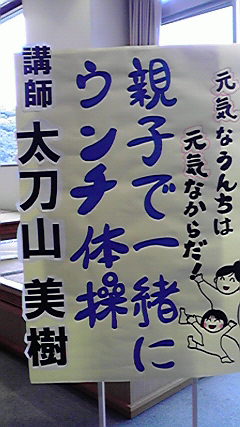 元気なうんちは
元気なからだ！
親子で一緒に
ウンチ体操
講師 太刀山 美樹